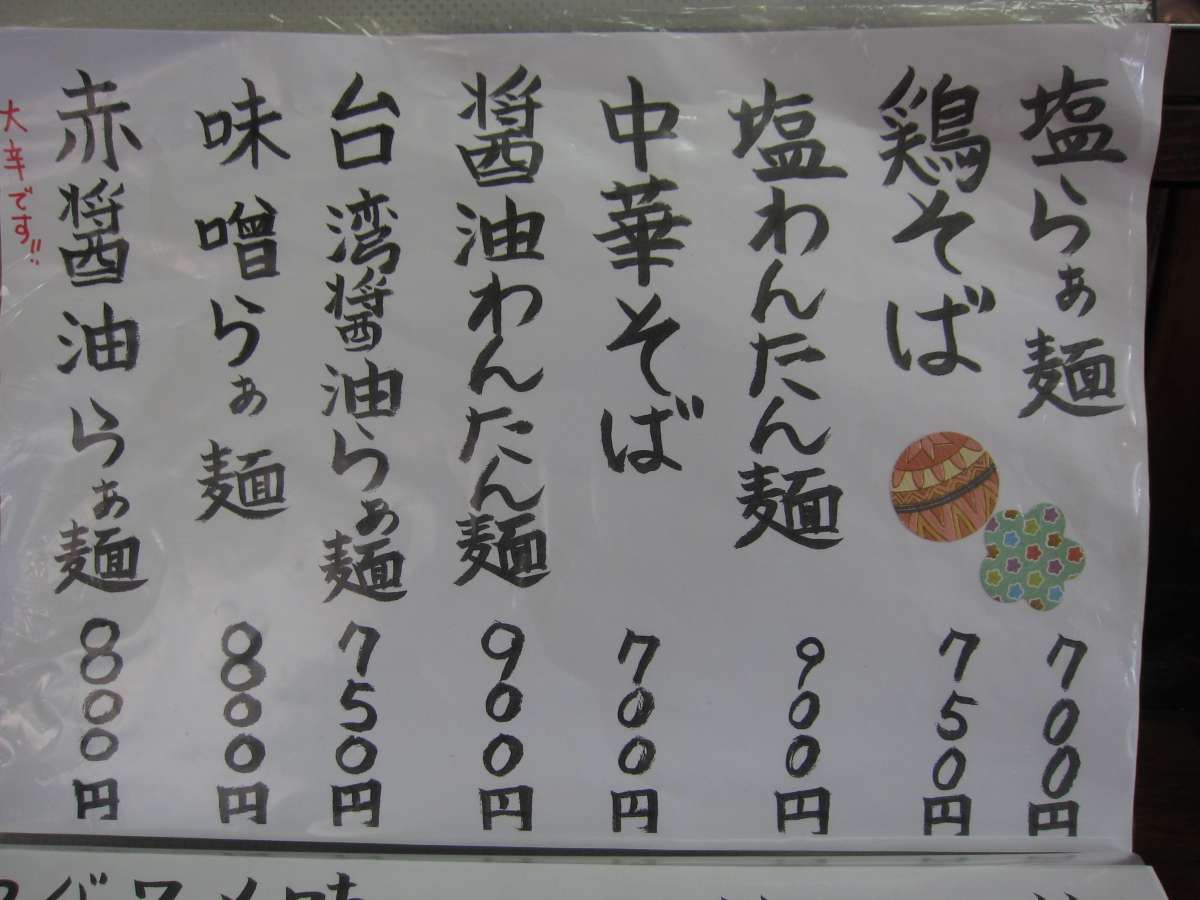 塩らぁ麺 700円
鶏そば 750円
塩わんたん麺 900円
中華そば 700円
醤油わんたん麺 900円
台湾醤油らぁ麺 750円
味噌らぁ麺 800円
赤醤油らぁ麺 800円
大辛です!!